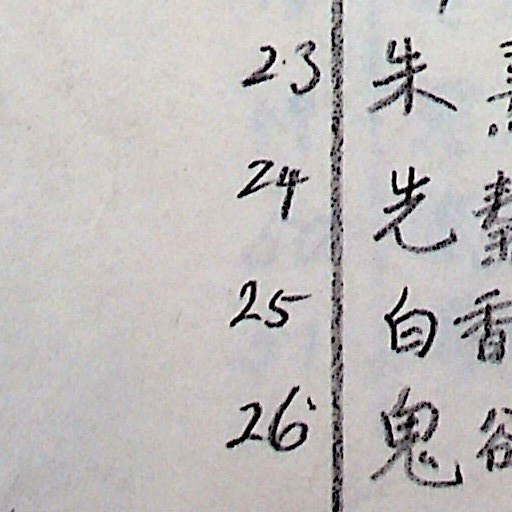 23 朱
24 先秦
25 白香
26 鬼谷